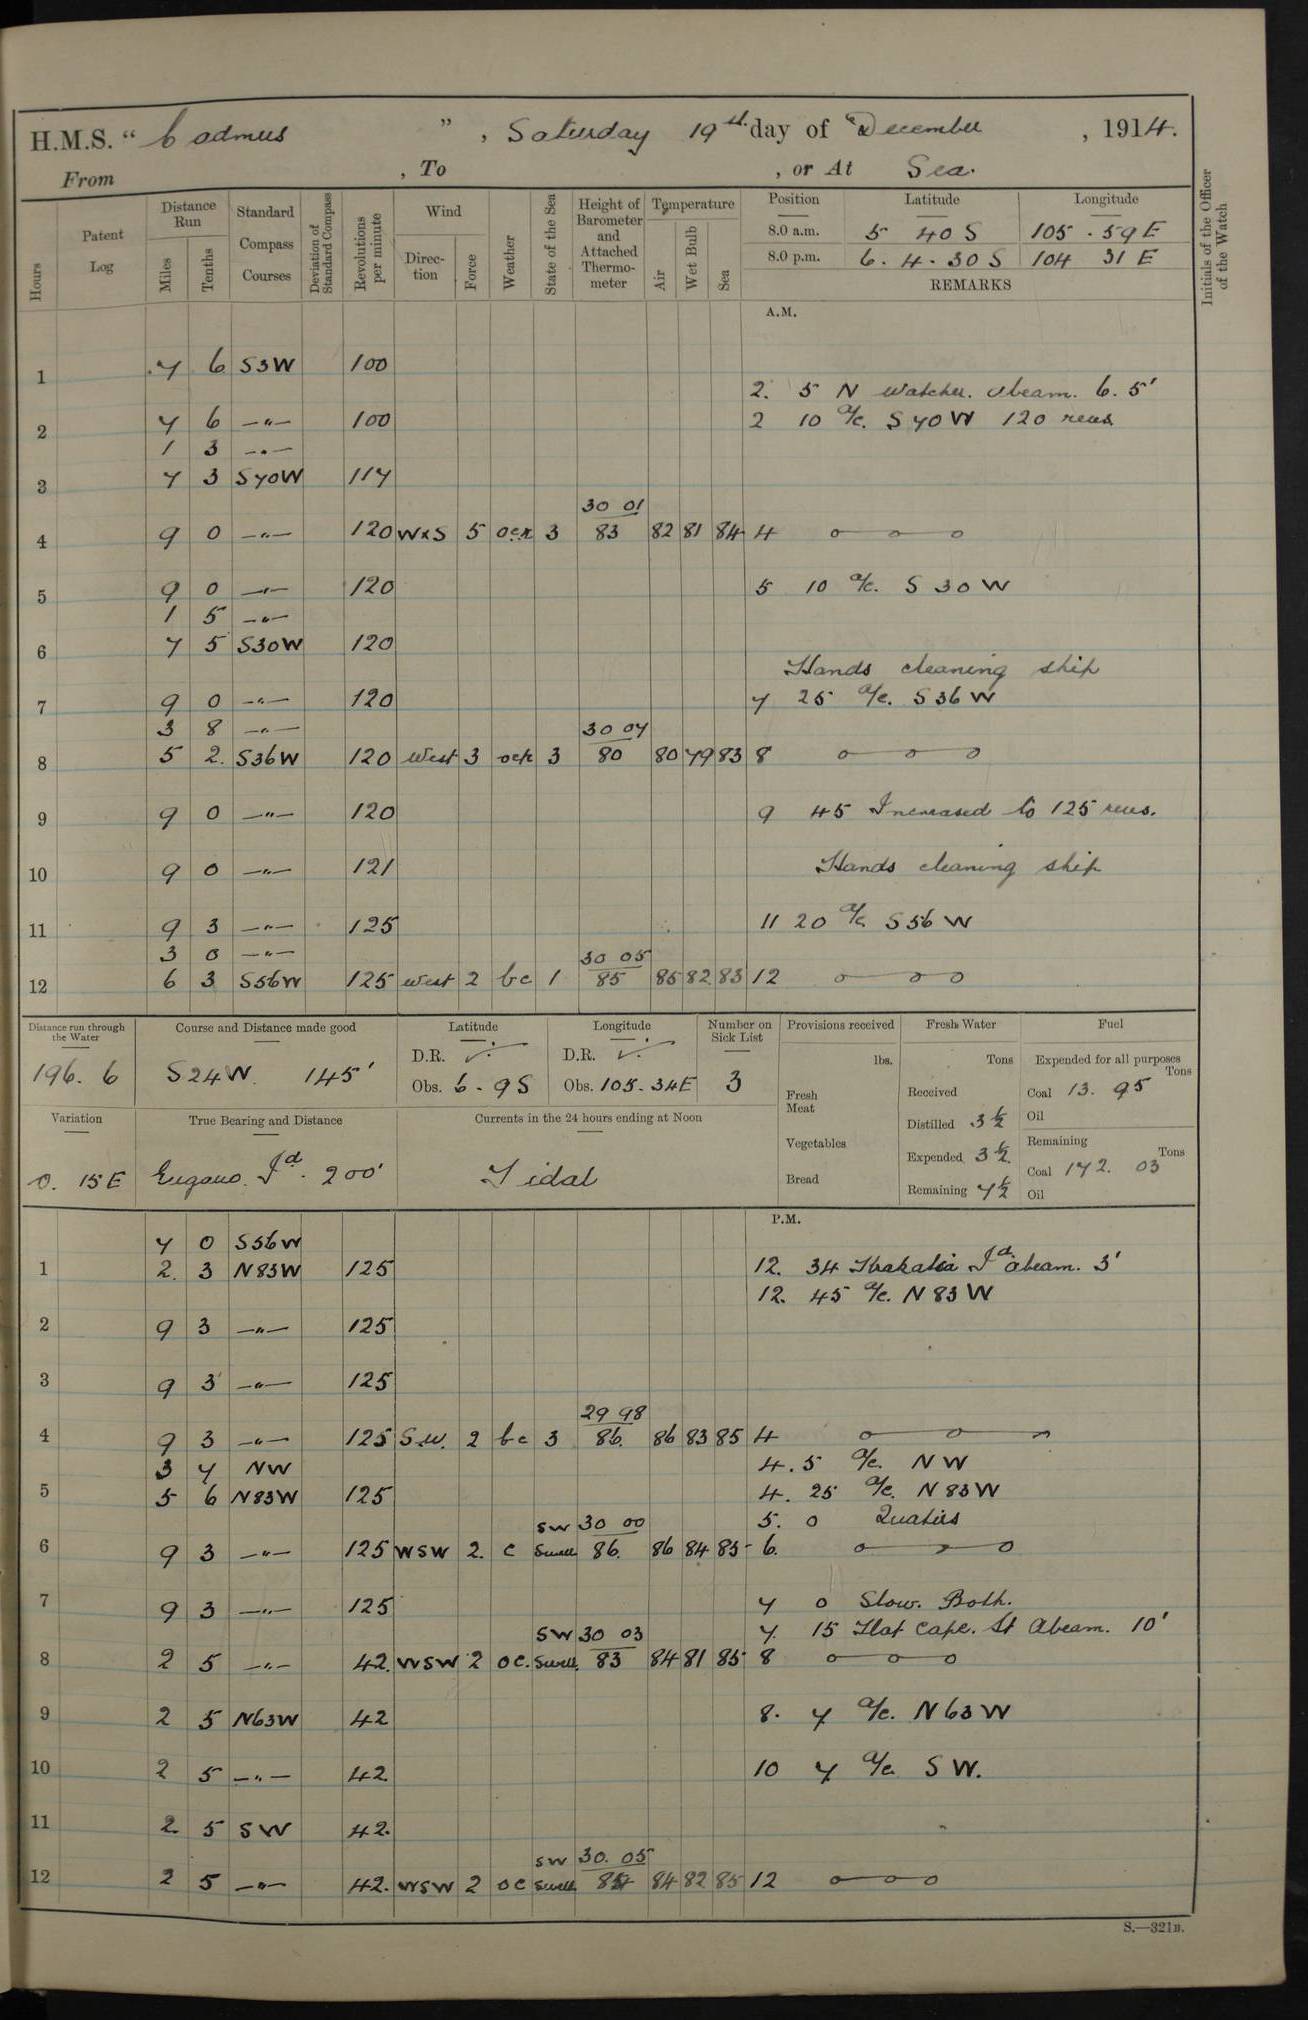 H.M.S. " Cadmus " , Saturday 19th day of December , 1914.
From , To , or At Sea.
Hours
Patent Log
Distance Run
Miles
Tenths
Standard Compass Courses
Deviation of Standard Compass
Revolutions per minute
Wind
Direction
Force
Weather
State of the Sea
Height of Barometer and Attached Thermometer
Temperature
Air
Wet Bulb
Sea
Position Latitude Longitude
8.0 a.m. 5 40 S 105 . 59 E
8.0 p.m. 6 . 4 . 30 S 104 31 E
REMARKS
Initials of the Officer of the Watch
A.M.
1 7 6 S3W 100
2. 5 N Watcher. abeam. 6. 5'
2 7 6 —"— 100 2 10 a/c. S 70 W 120 revs.
1 3 —"—
3 7 3 S70W 117
30 01
4 9 0 —"— 120 WxS 5 3 83 82 81 84 4
5 9 0 —"— 120 5 10 a/c. S 30 W
1 5 —"—
6 7 5 S30W 120
Hands cleaning ship
7 9 0 —"— 120 7 25 a/c. S 36 W
3 8 —"— 30 07
8 5 2. S36W 120 West 3 3 80 80 79 83 8
9 9 0 —"— 120 9 45 Increased to 125 revs.
10 9 0 —"— 121 Hands cleaning ship
11 9 3 —"— 125 11 20 a/c S 56 W
3 0 —"— 30 05
12 6 3 S56W 125 West 2 bc 1 85 85 82 83 12
Distance run through the Water
196. 6
Course and Distance made good
S 24 W. 145'
Latitude
D.R.
Obs. 6 - 9 S
Longitude
D.R.
Obs. 105 - 34 E
Number on Sick List
3
Provisions received
lbs.
Fresh Meat
Vegetables
Bread
Fresh Water
Tons
Received
Distilled 3½
Expended 3½
Remaining 7½
Fuel
Expended for all purposes
Tons
Coal 13. 95
Oil
Remaining
Tons
Coal 172. 03
Oil
Variation
0. 15 E
True Bearing and Distance
Engano. Id. 200'
Currents in the 24 hours ending at Noon
Tidal
P.M.
7 0 S56W
1 2. 3 N83W 125 12. 34 Krakatoa Id abeam. 3'
12. 45 a/c. N 83 W
2 9 3 —"— 125
3 9 3 —"— 125
29 98
4 9 3 —"— 125 S.W. 2 bc 3 86. 86 83 85 4
3 7 NW 4. 5 a/c. N W
5 5 6 N83W 125 4. 25 a/c. N 83 W
SW 30 00 5. 0 Quarters
6 9 3 —"— 125 WSW 2. c Swell 86. 86 84 85 6.
7 9 3 —"— 125 7 0 Slow. Both.
SW 30 03 7. 15 Flat Cape. Lt Abeam. 10'
8 2 5 —"— 42. WSW 2 oc. Swell. 83 84 81 85 8
9 2 5 N63W 42 8. 7 a/c. N 63 W
10 2 5 —"— 42. 10 7 a/c S W.
11 2. 5 S W 42.
SW 30. 05
12 2 5 —"— 42. WSW 2 oc Swell 84 82 85 12
S.—321B.